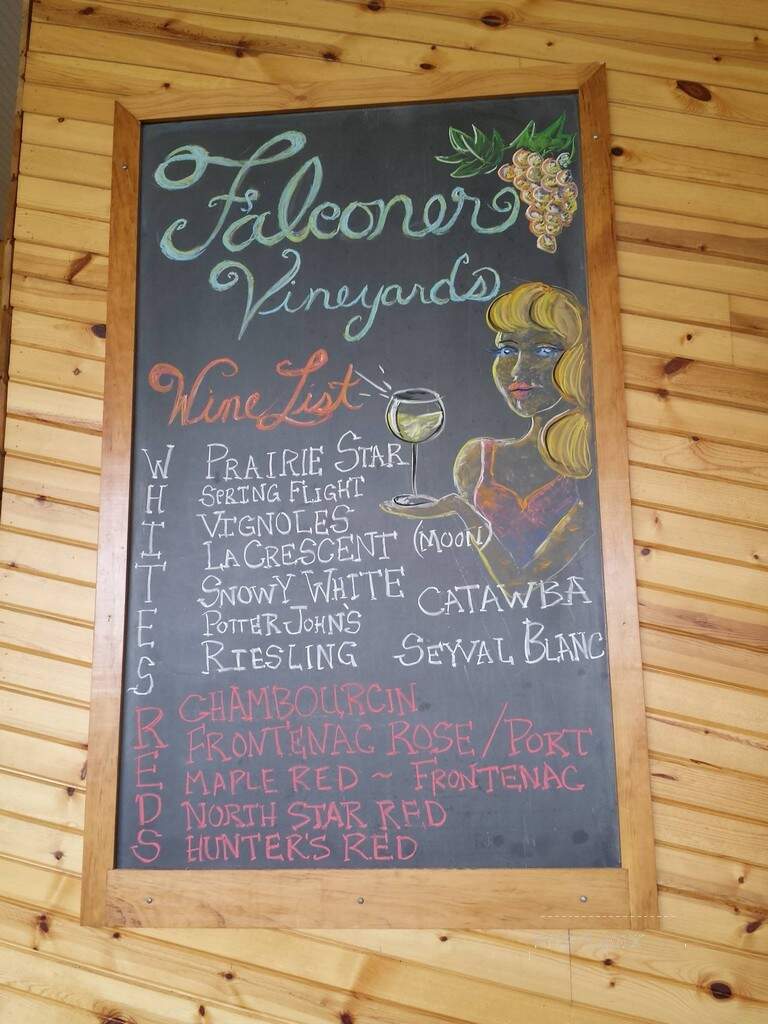 Falconer
Vineyards
Wine List
WHITES
PRAIRIE STAR
SPRING FLIGHT
VIGNOLES
LA CRESCENT (MOON)
SNOWY WHITE CATAWBA
POTTER JOHN'S
RIESLING SEYVAL BLANC
REDS
CHAMBOURCIN
FRONTENAC ROSE/PORT
MAPLE RED ~ FRONTENAC
NORTH STAR RED
HUNTER'S RED